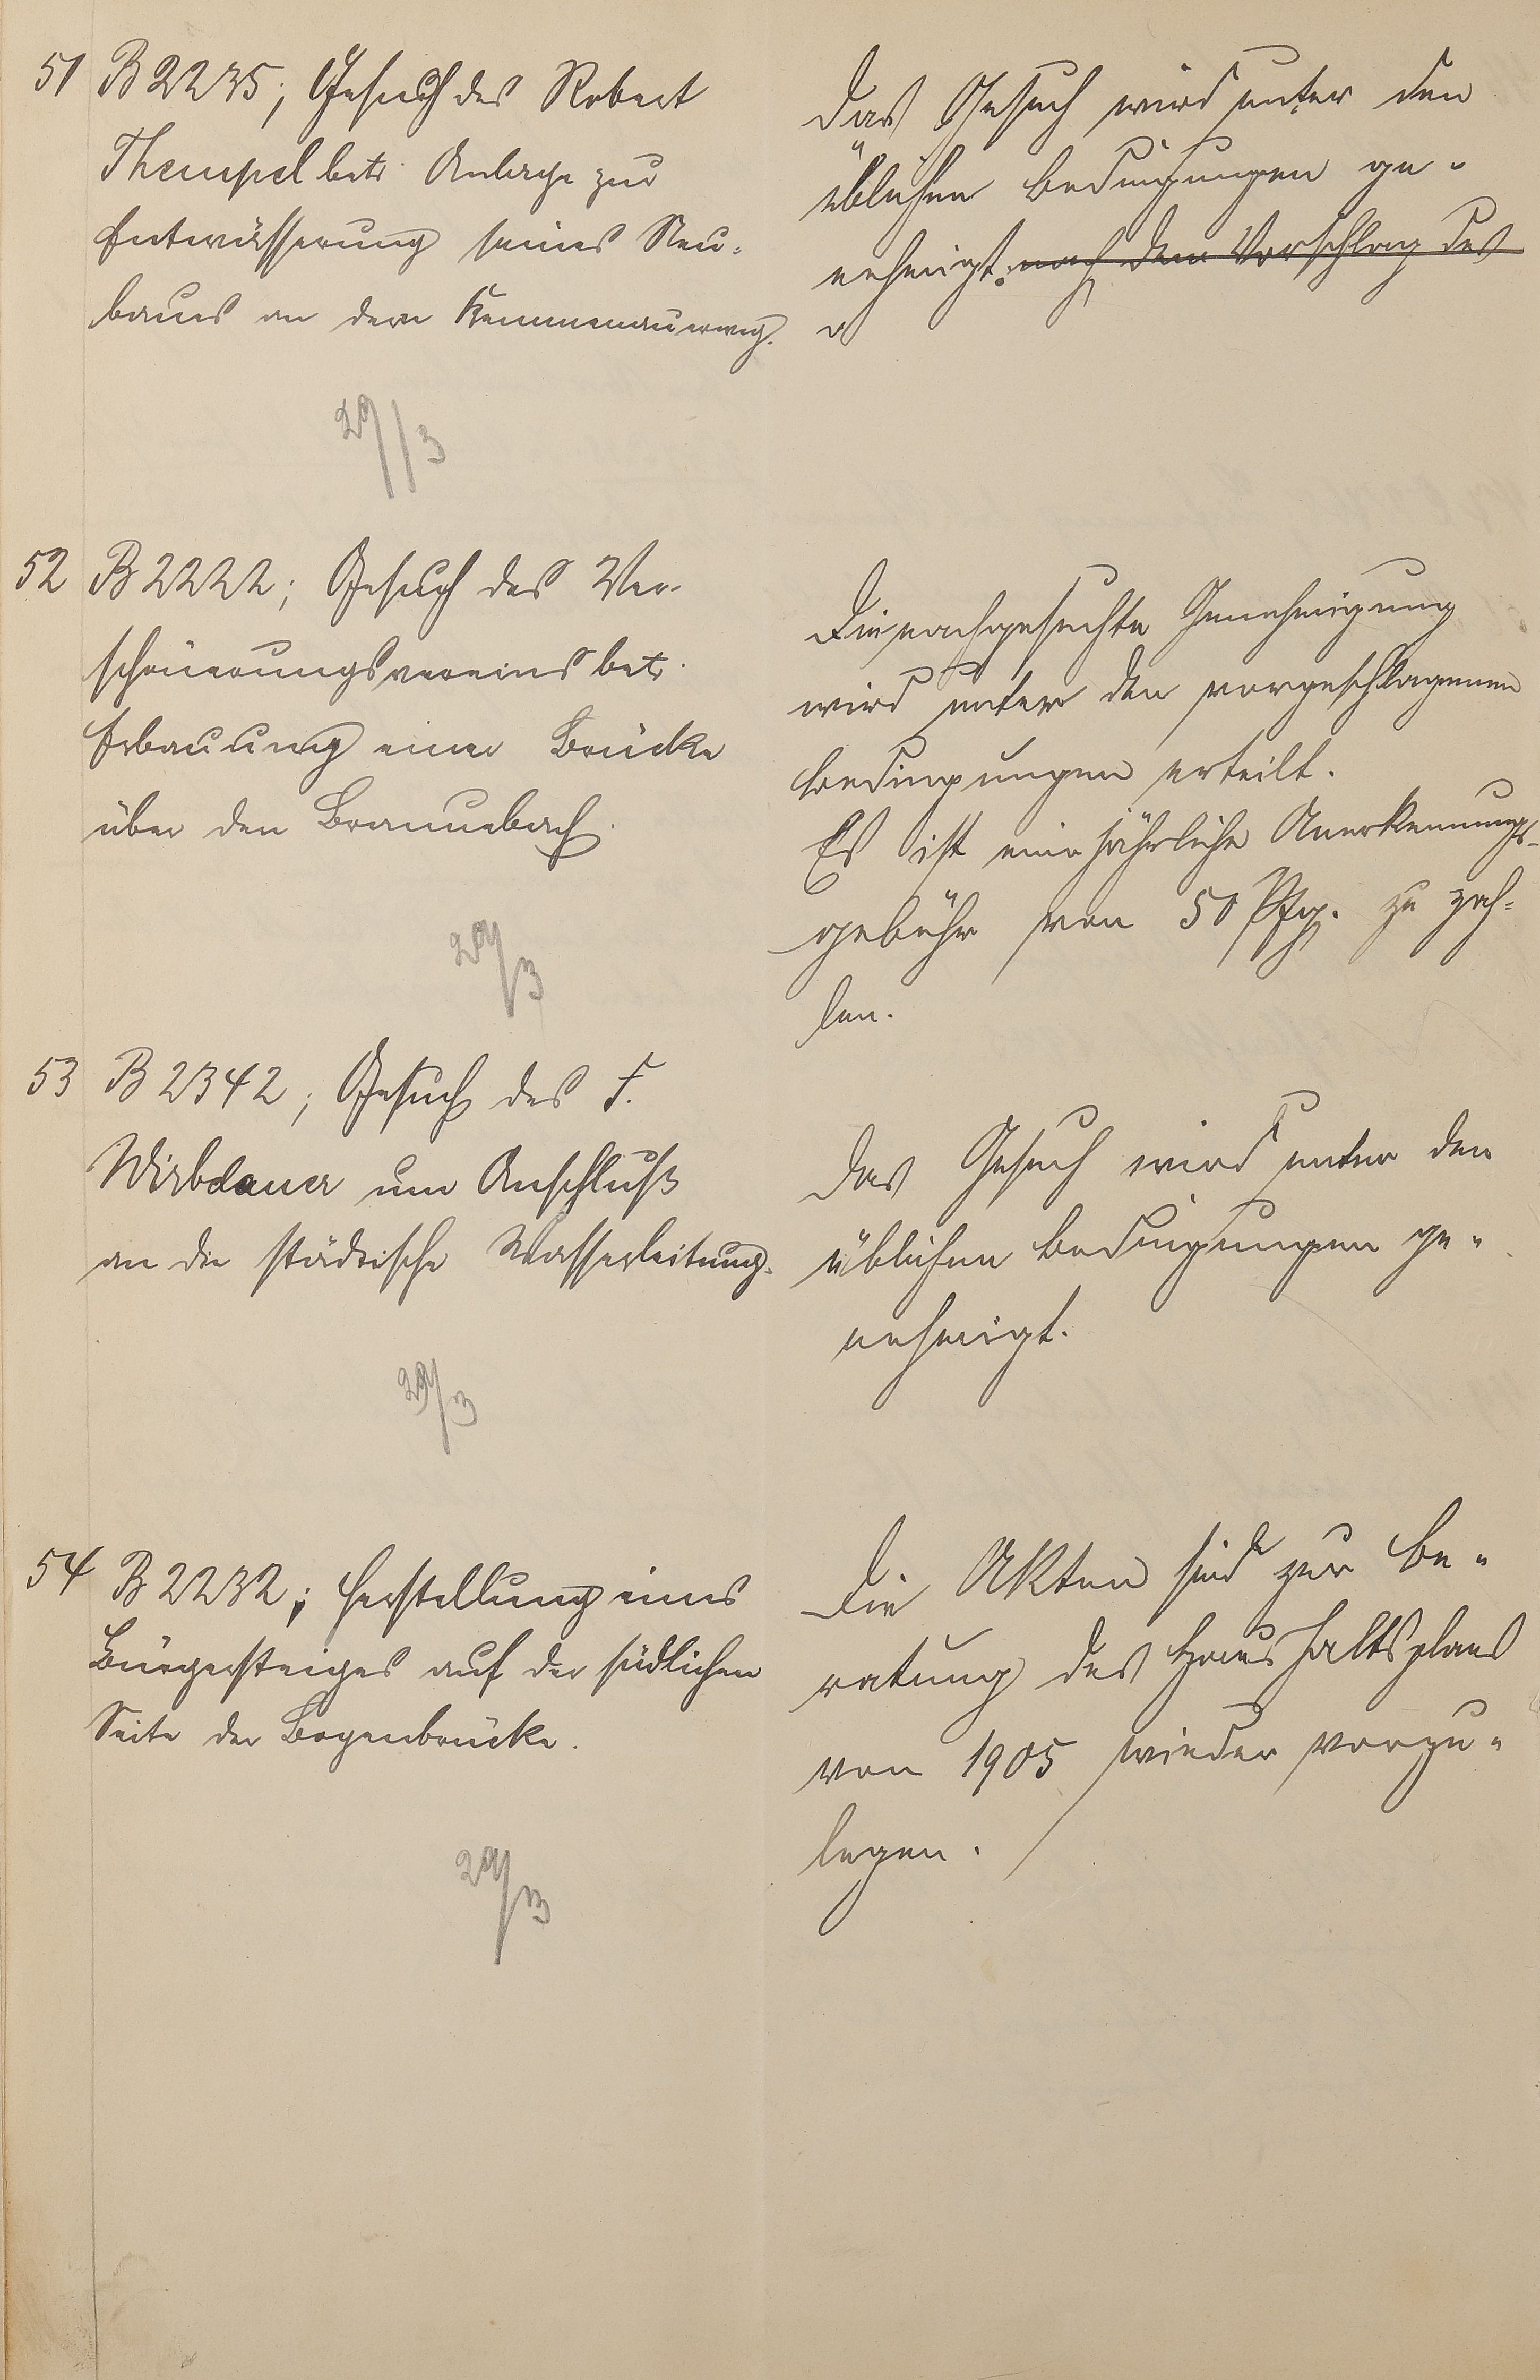 51 B 2235; Gesuch des Robert
Thempel betr. Anlage zur
Entwässerung seines Neu-
baues an dem Kemmenauerweg.
Das Gesuch wird unter den
üblichen Bedingungen ge-
nehmigt. nach dem Vorschlag des
29/3
52 B 2222; Gesuch des Ver-
schönerungsvereins betr.
Erbauung einer Brücke
über den Braunebach.
Die nachgesuchte Genehmigung
wird unter den vorgeschlagenen
Bedingungen erteilt.
Es ist eine jährliche Anerkennungs-
gebühr von 50 Pfg. zu zah-
len.
29/3
53 B 2342; Gesuch des F.
Wirbelauer um Anschluß
an die städtische Wasserleitung.
Das Gesuch wird unter den
üblichen Bedingungen ge-
nehmigt.
29/3
54 B 2232; Herstellung eines
Bürgersteiges auf der südlichen
Seite der Bogenbrücke.
Die Akten sind zur Be-
ratung des Haushaltsplans
von 1905 wieder vorzu-
legen.
29/3